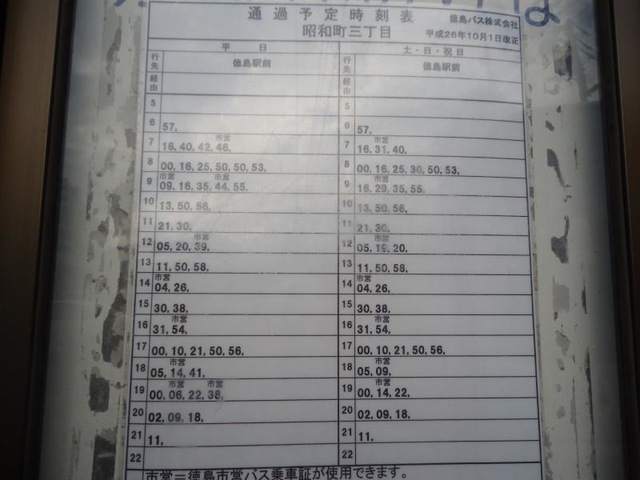 通過予定時刻表
徳島バス株式会社
昭和町三丁目
平成26年10月1日改正
平 日 土・日・祝日
行先 徳島駅前 行先 徳島駅前
経由 経由
5 5
6 57, 6 57,
市営
7 16, 40, 42, 46, 7 16, 31, 40,
8 00, 16, 25, 50, 50, 53, 8 00, 16, 25, 30, 50, 53,
市営 市営 市営
9 09, 16, 35, 44, 55, 9 16, 29, 35, 55,
10 13, 50, 56, 10 13, 50, 56,
11 21, 30, 11 21, 30,
市営 市営
12 05, 20, 39, 12 05, 19, 20,
13 11, 50, 58, 13 11, 50, 58,
市営 市営
14 04, 26, 14 04, 26,
15 30, 38, 15 30, 38,
市営 市営
16 31, 54, 16 31, 54,
17 00, 10, 21, 50, 56, 17 00, 10, 21, 50, 56,
市営 市営
18 05, 14, 41, 18 05, 09,
市営 市営 市営
19 00, 06, 22, 38, 19 00, 14, 22,
20 02, 09, 18, 20 02, 09, 18,
21 11, 21 11,
22 22
市営=徳島市営バス乗車証が使用できます。